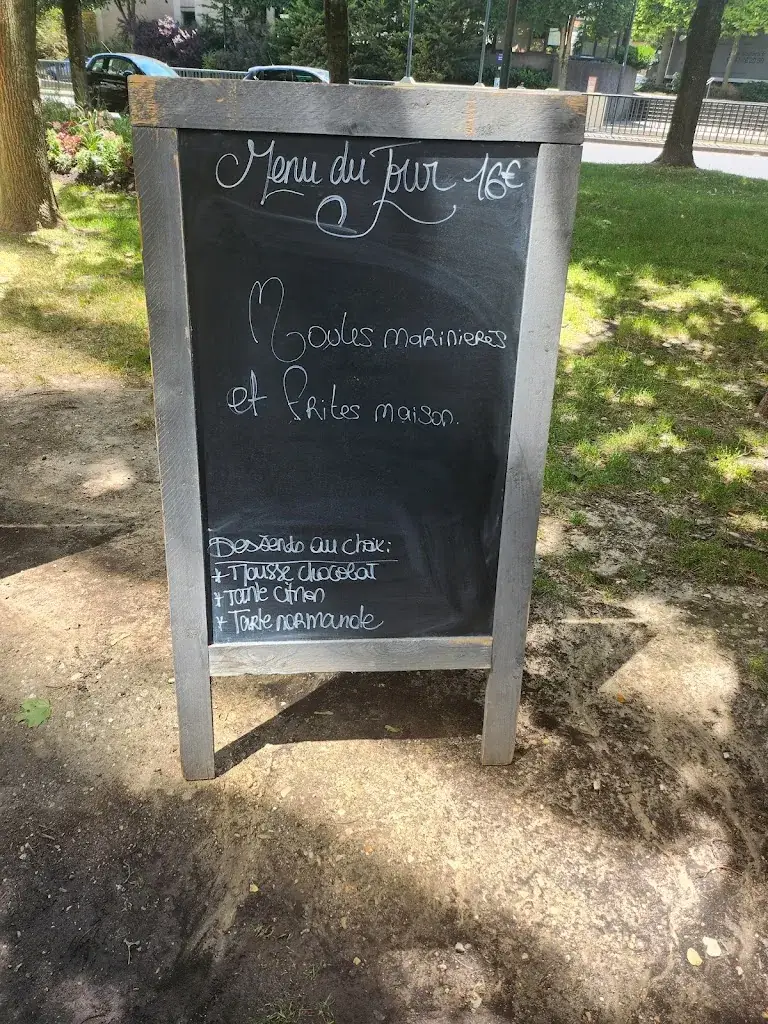 Menu du Jour 16€
Moules marinieres
et frites maison.
Desserts au choix:
* Mousse chocolat
* Tarte citron
* Tarte normande